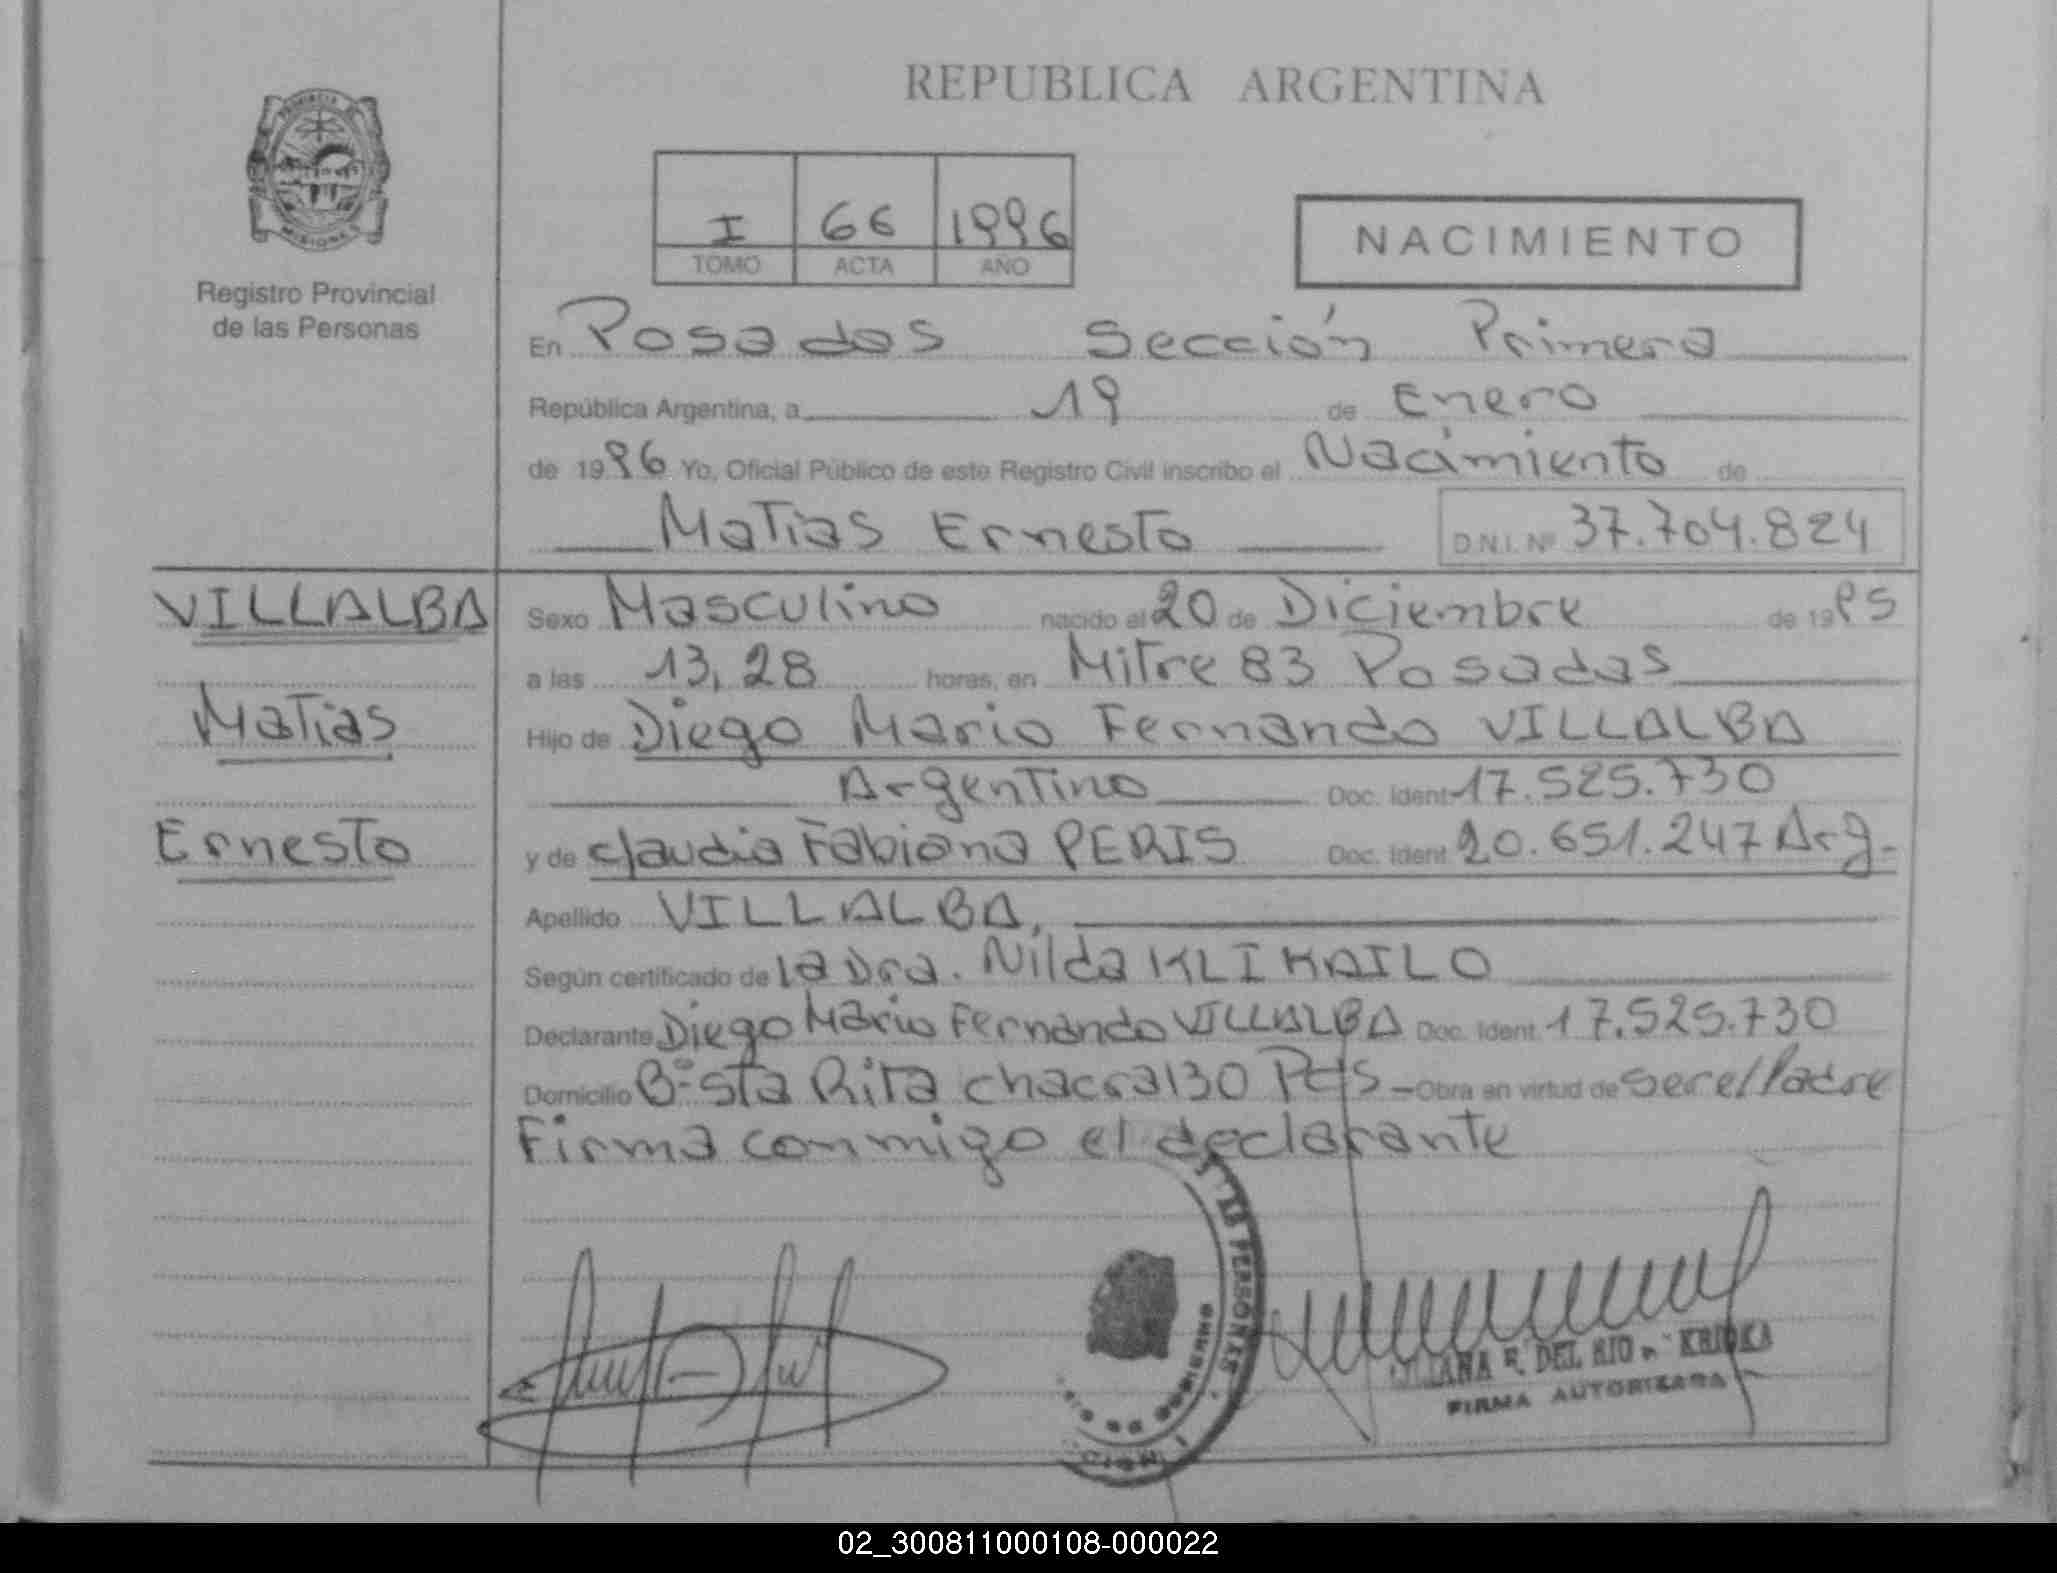 REPUBLICA ARGENTINA
PROVINCIA DE
MISIONES
Registro Provincial
de las Personas
I 66 1996
TOMO ACTA AÑO
NACIMIENTO
En Posadas Sección Primera
República Argentina, a 19 de Enero
de 1996 Yo, Oficial Público de este Registro Civil inscribo el Nacimiento de
Matias Ernesto D.N.I. Nº 37.704.824
VILLALBA
Matias
Ernesto
Sexo Masculino nacido el 20 de Diciembre de 1995
a las 13,28 horas, en Mitre 83 Posadas
Hijo de Diego Mario Fernando VILLALBA
Argentino Doc. Ident 17.525.730
y de Claudia Fabiana PERIS Doc. Ident 20.651.247 Arg.
Apellido VILLALBA,
Según certificado de la Dra. Nilda KLIKAILO
Declarante Diego Mario Fernando VILLALBA Doc. Ident. 17.525.730
Domicilio Bº Sta Rita chacra 130 Pdas - Obra en virtud de ser el Padre
Firma conmigo el declarante
PERSONAS
DEL RIO
FIRMA AUTORIZADA
02_300811000108-000022